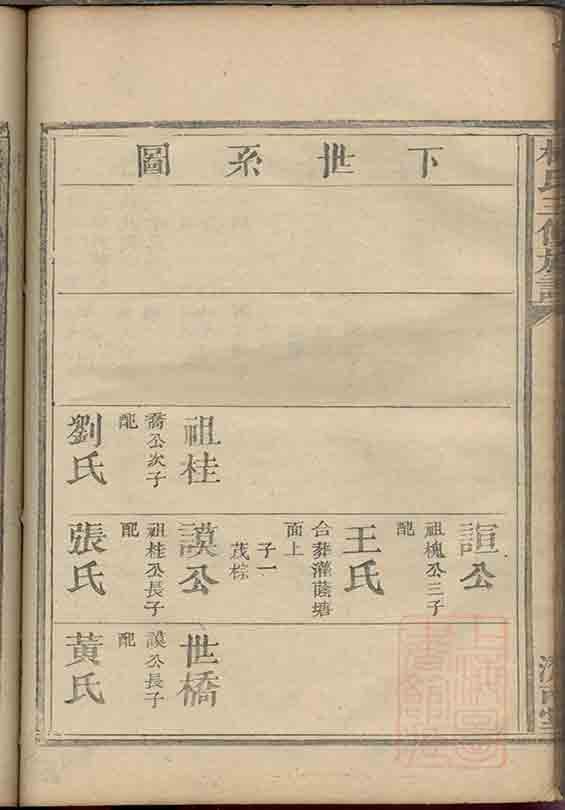 下世系圖
祖桂
喬公次子
配
劉氏
諠公
祖槐公三子
配
王氏
合葬灌蔭塘
面上
子一
茂棕
謨公
祖桂公長子
配
張氏
世橋
謨公長子
配
黃氏
氏三修族譜